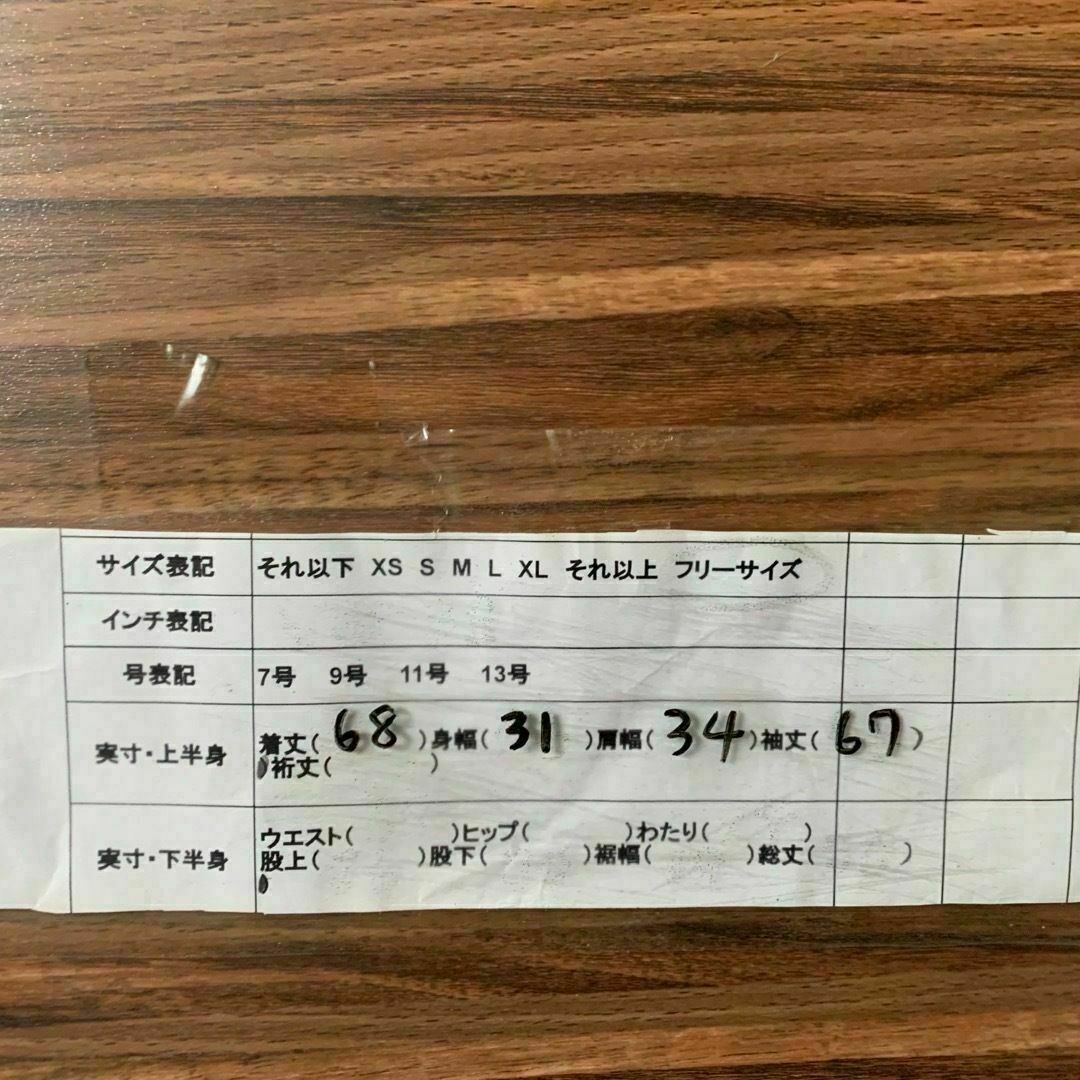 サイズ表記 それ以下 XS S M L XL それ以上 フリーサイズ
インチ表記
号表記 7号 9号 11号 13号
実寸・上半身 着丈( 68 )身幅( 31 )肩幅( 34 )袖丈( 67 )
)裄丈( )
実寸・下半身 ウエスト( )ヒップ( )わたり( )
股上( )股下( )裾幅( )総丈( )
)